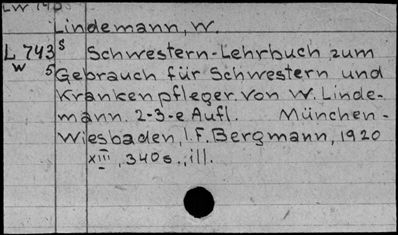 Lindemann, W.
L 743 s Schwestern-Lehrbuch zum
w 5 Gebrauch für Schwestern und
Krankenpfleger. Von W. Linde-
mann. 2-3-e Aufl. München-
Wiesbaden, I.F. Bergmann, 1920
XIII, 340 s., ill.